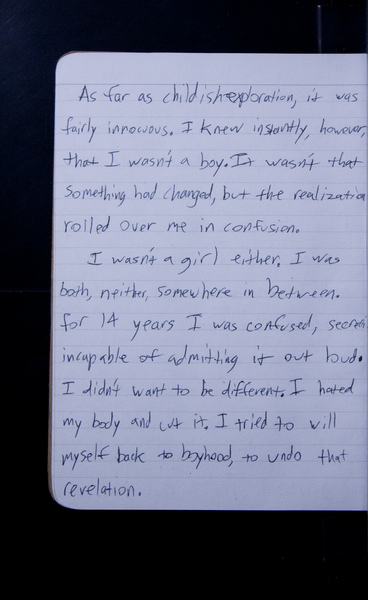 As far as childish exploration, it was
fairly innocuous. I knew instantly, however,
that I wasn't a boy. It wasn't that
something had changed, but the realization
rolled over me in confusion.
I wasn't a girl either, I was
both, neither, somewhere in between.
for 14 years I was confused,
incapable of admitting it out loud.
I didn't want to be different. I hated
my body and cut it. I tried to will
myself back to boyhood, to undo that
revelation.